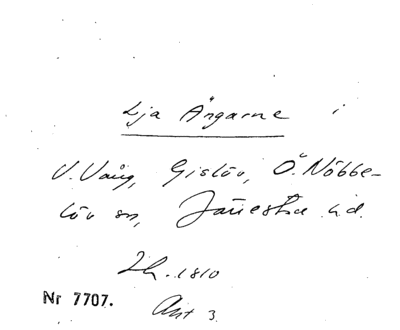 Lja Ängarne i
V. Vång, Gislöv, Ö. Nöbbe-
löv sn, Järrestad hd.
2h. 1810
Nr 7707.
Ant 3